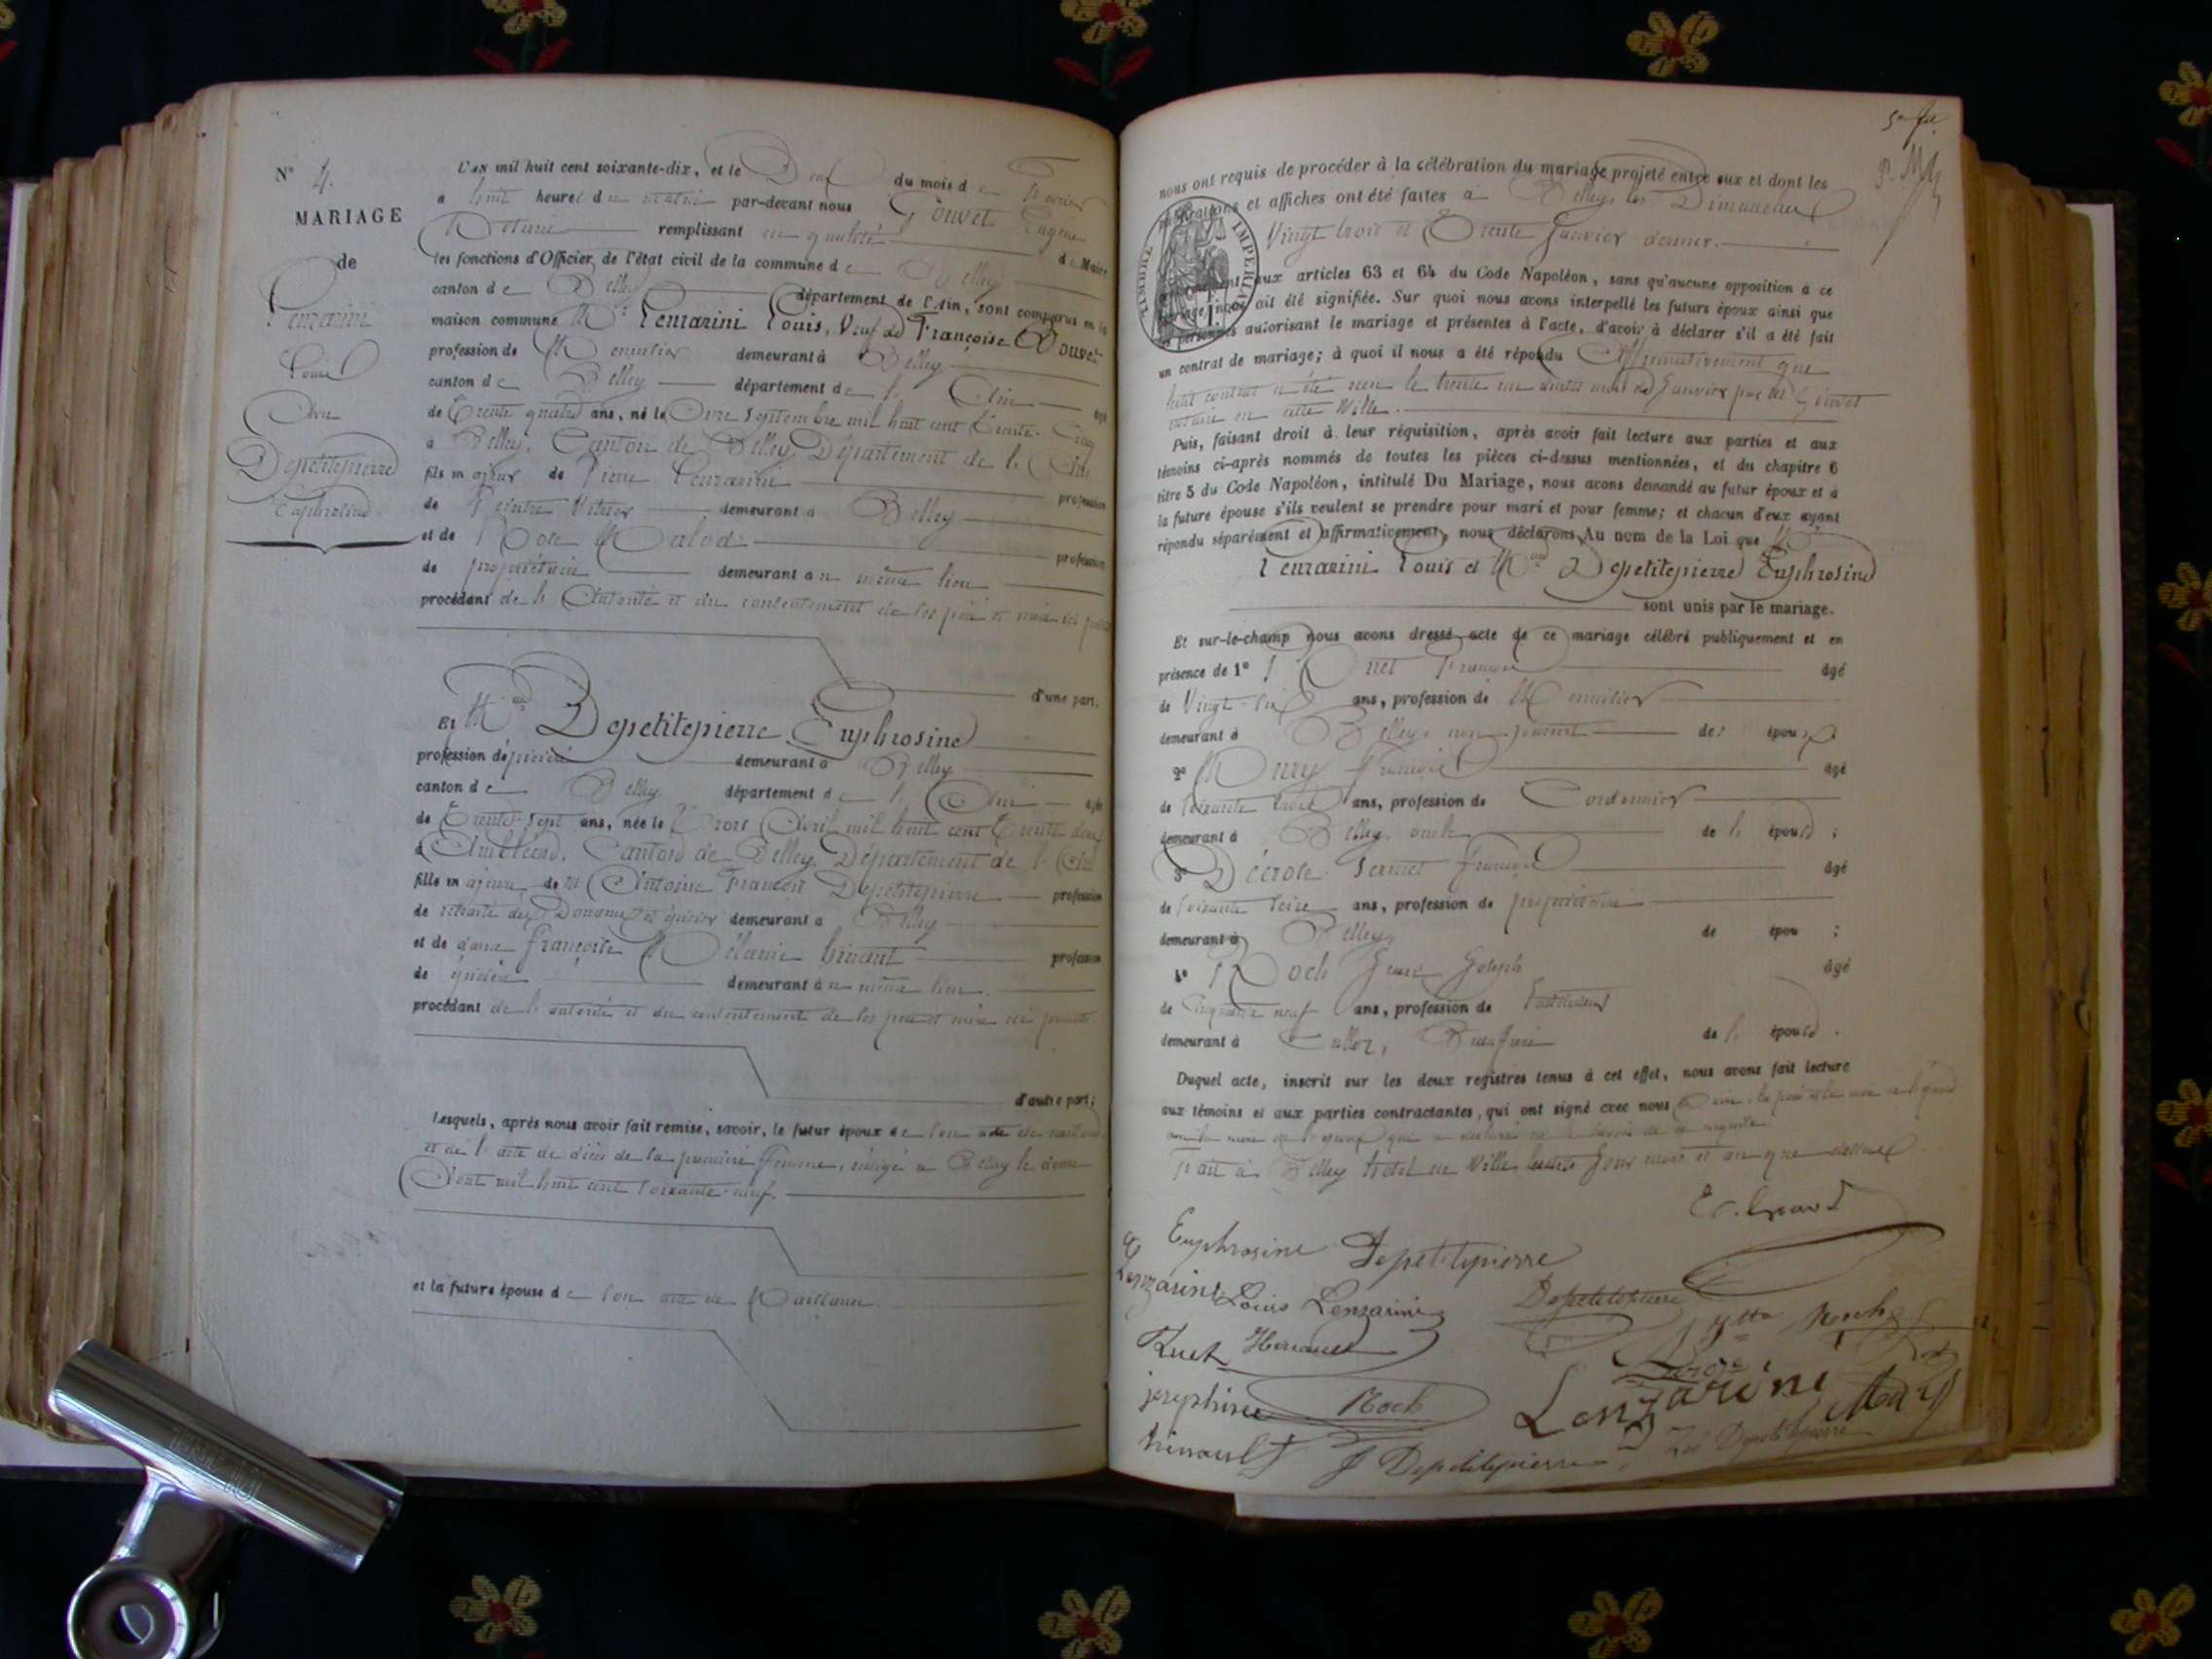 N° 4.
MARIAGE
de
Lenzarini
Louis
Et
Depetitepierre
Euphrosine
L'AN mil huit cent soixante-dix, et le Deux du mois de Février
à huit heures du matin par-devant nous Eugène
Notaire remplissant en qualité de Maire
les fonctions d'Officier de l'état civil de la commune de Belley
canton de Belley département de l'Ain, sont comparus en la
maison commune Mr Lenzarini Louis, Veuf de Françoise
profession de Menuisier demeurant à Belley
canton de Belley département de l'Ain âgé
de Trente quatre ans, né le Onze Septembre mil huit cent Trente-Cinq
à Belley, Canton de Belley, Département de l'Ain
fils majeur de Pierre Lenzarini profession
de Peintre Vitrier demeurant à Belley
et de profession
de propriétaire demeurant au même lieu
procédant de l'autorité et du consentement de ses père et mère ici présents
d'une part.
Et Melle Depetitepierre Euphrosine
profession d'épicière demeurant à Belley
canton de Belley département de l'Ain âgée
de Trente-Sept ans, née le Trois Avril mil huit cent Trente deux
à Ambléon, Canton de Belley, Département de l'Ain
fille majeure de Mr Antoine François Depetitepierre profession
de retraité des Douanes et épicier demeurant à Belley
et de dame Françoise Mélanie profession
de épicière demeurant au même lieu.
procédant de l'autorité et du consentement de ses père et mère ici présents
d'autre part;
Lesquels, après nous avoir fait remise, savoir, le futur époux de son acte de naissance
et de l'acte de décès de sa première femme, rédigé à Belley le
Août mil huit cent soixante-neuf.
et la future épouse de son acte de Naissance
nous ont requis de procéder à la célébration du mariage projeté entre eux et dont les
publications et affiches ont été faites à Belley, les Dimanches
Vingt trois et Trente Janvier dernier.
conformément aux articles 63 et 64 du Code Napoléon, sans qu'aucune opposition à ce
mariage nous ait été signifiée. Sur quoi nous avons interpellé les futurs époux ainsi que
les personnes autorisant le mariage et présentes à l'acte, d'avoir à déclarer s'il a été fait
un contrat de mariage; à quoi il nous a été répondu Affirmativement que
ledit contrat a été reçu le trente un dudit mois de Janvier par Me
notaire en cette Ville.
TIMBRE IMPERIAL
Puis, faisant droit à leur réquisition, après avoir fait lecture aux parties et aux
témoins ci-après nommés de toutes les pièces ci-dessus mentionnées, et du chapitre 6
titre 5 du Code Napoléon, intitulé Du Mariage, nous avons demandé au futur époux et à
la future épouse s'ils veulent se prendre pour mari et pour femme; et chacun d'eux ayant
répondu séparément et affirmativement, nous déclarons Au nom de la Loi que Mr
Lenzarini Louis et Melle Depetitepierre Euphrosine
sont unis par le mariage.
Et sur-le-champ nous avons dressé acte de ce mariage célébré publiquement et en
présence de 1° François âgé
de Vingt-six ans, profession de Menuisier
demeurant à Belley, non parent des époux
2° François âgé
de soixante ans, profession de Cordonnier
demeurant à Belley, oncle de l'épouse;
3° Décrose Sermet François âgé
de soixante seize ans, profession de propriétaire
demeurant à Belley, de épou ;
4° Roch Jean Joseph âgé
de Cinquante neuf ans, profession de
demeurant à Culloz, Beau frère de l'épouse.
Duquel acte, inscrit sur les deux registres tenus à cet effet, nous avons fait lecture
aux témoins et aux parties contractantes, qui ont signé avec nous
Fait à Belley hotel de Ville, lesdits jour mois et an que dessus
Euphrosine Depetitepierre
Lenzarini Louis Lenzarini
Depetitepierre
Roch
Josephine Roch
Lenzarini
J Depetitepierre
Depetitepierre